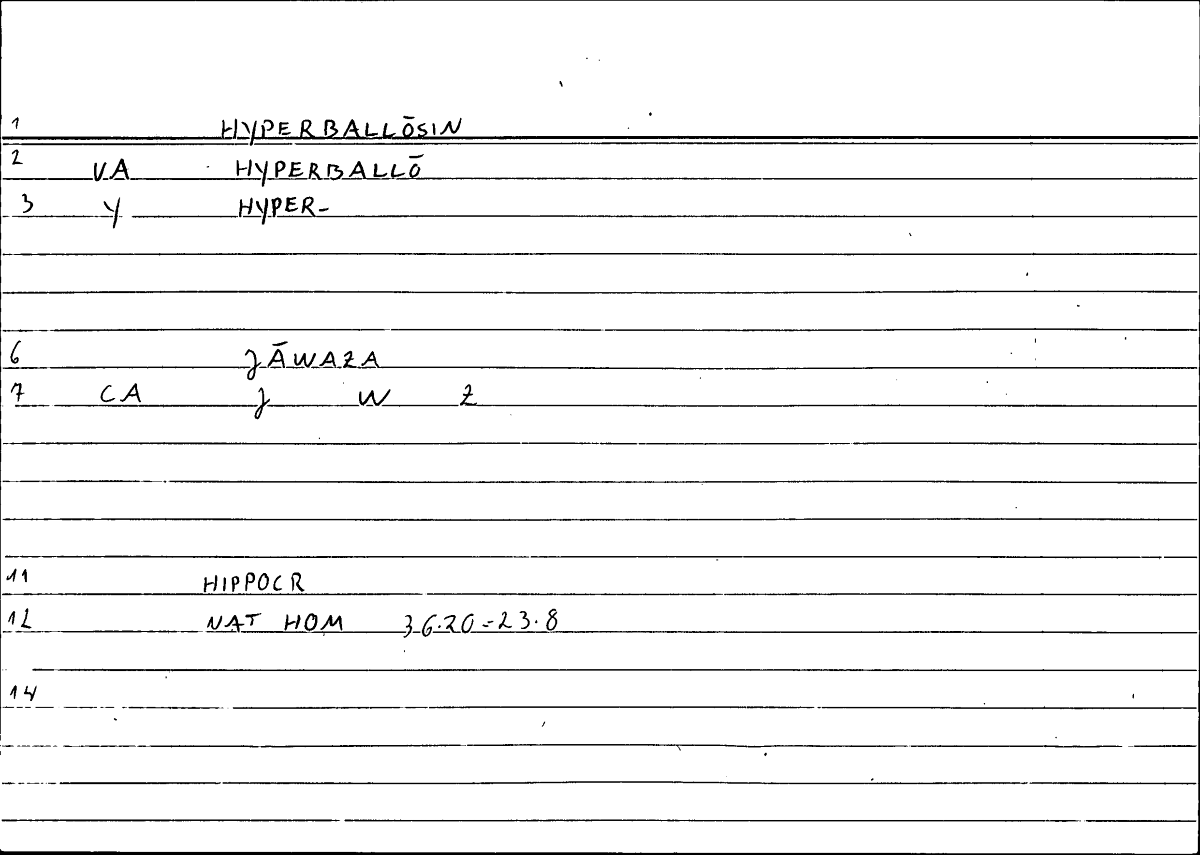 1 HYPERBALLŌSIN
2 VA HYPERBALLŌ
3 Y HYPER-
6 JĀWAZA
7 CA J W Z
11 HIPPOCR
12 NAT HOM 36.20=23.8
14